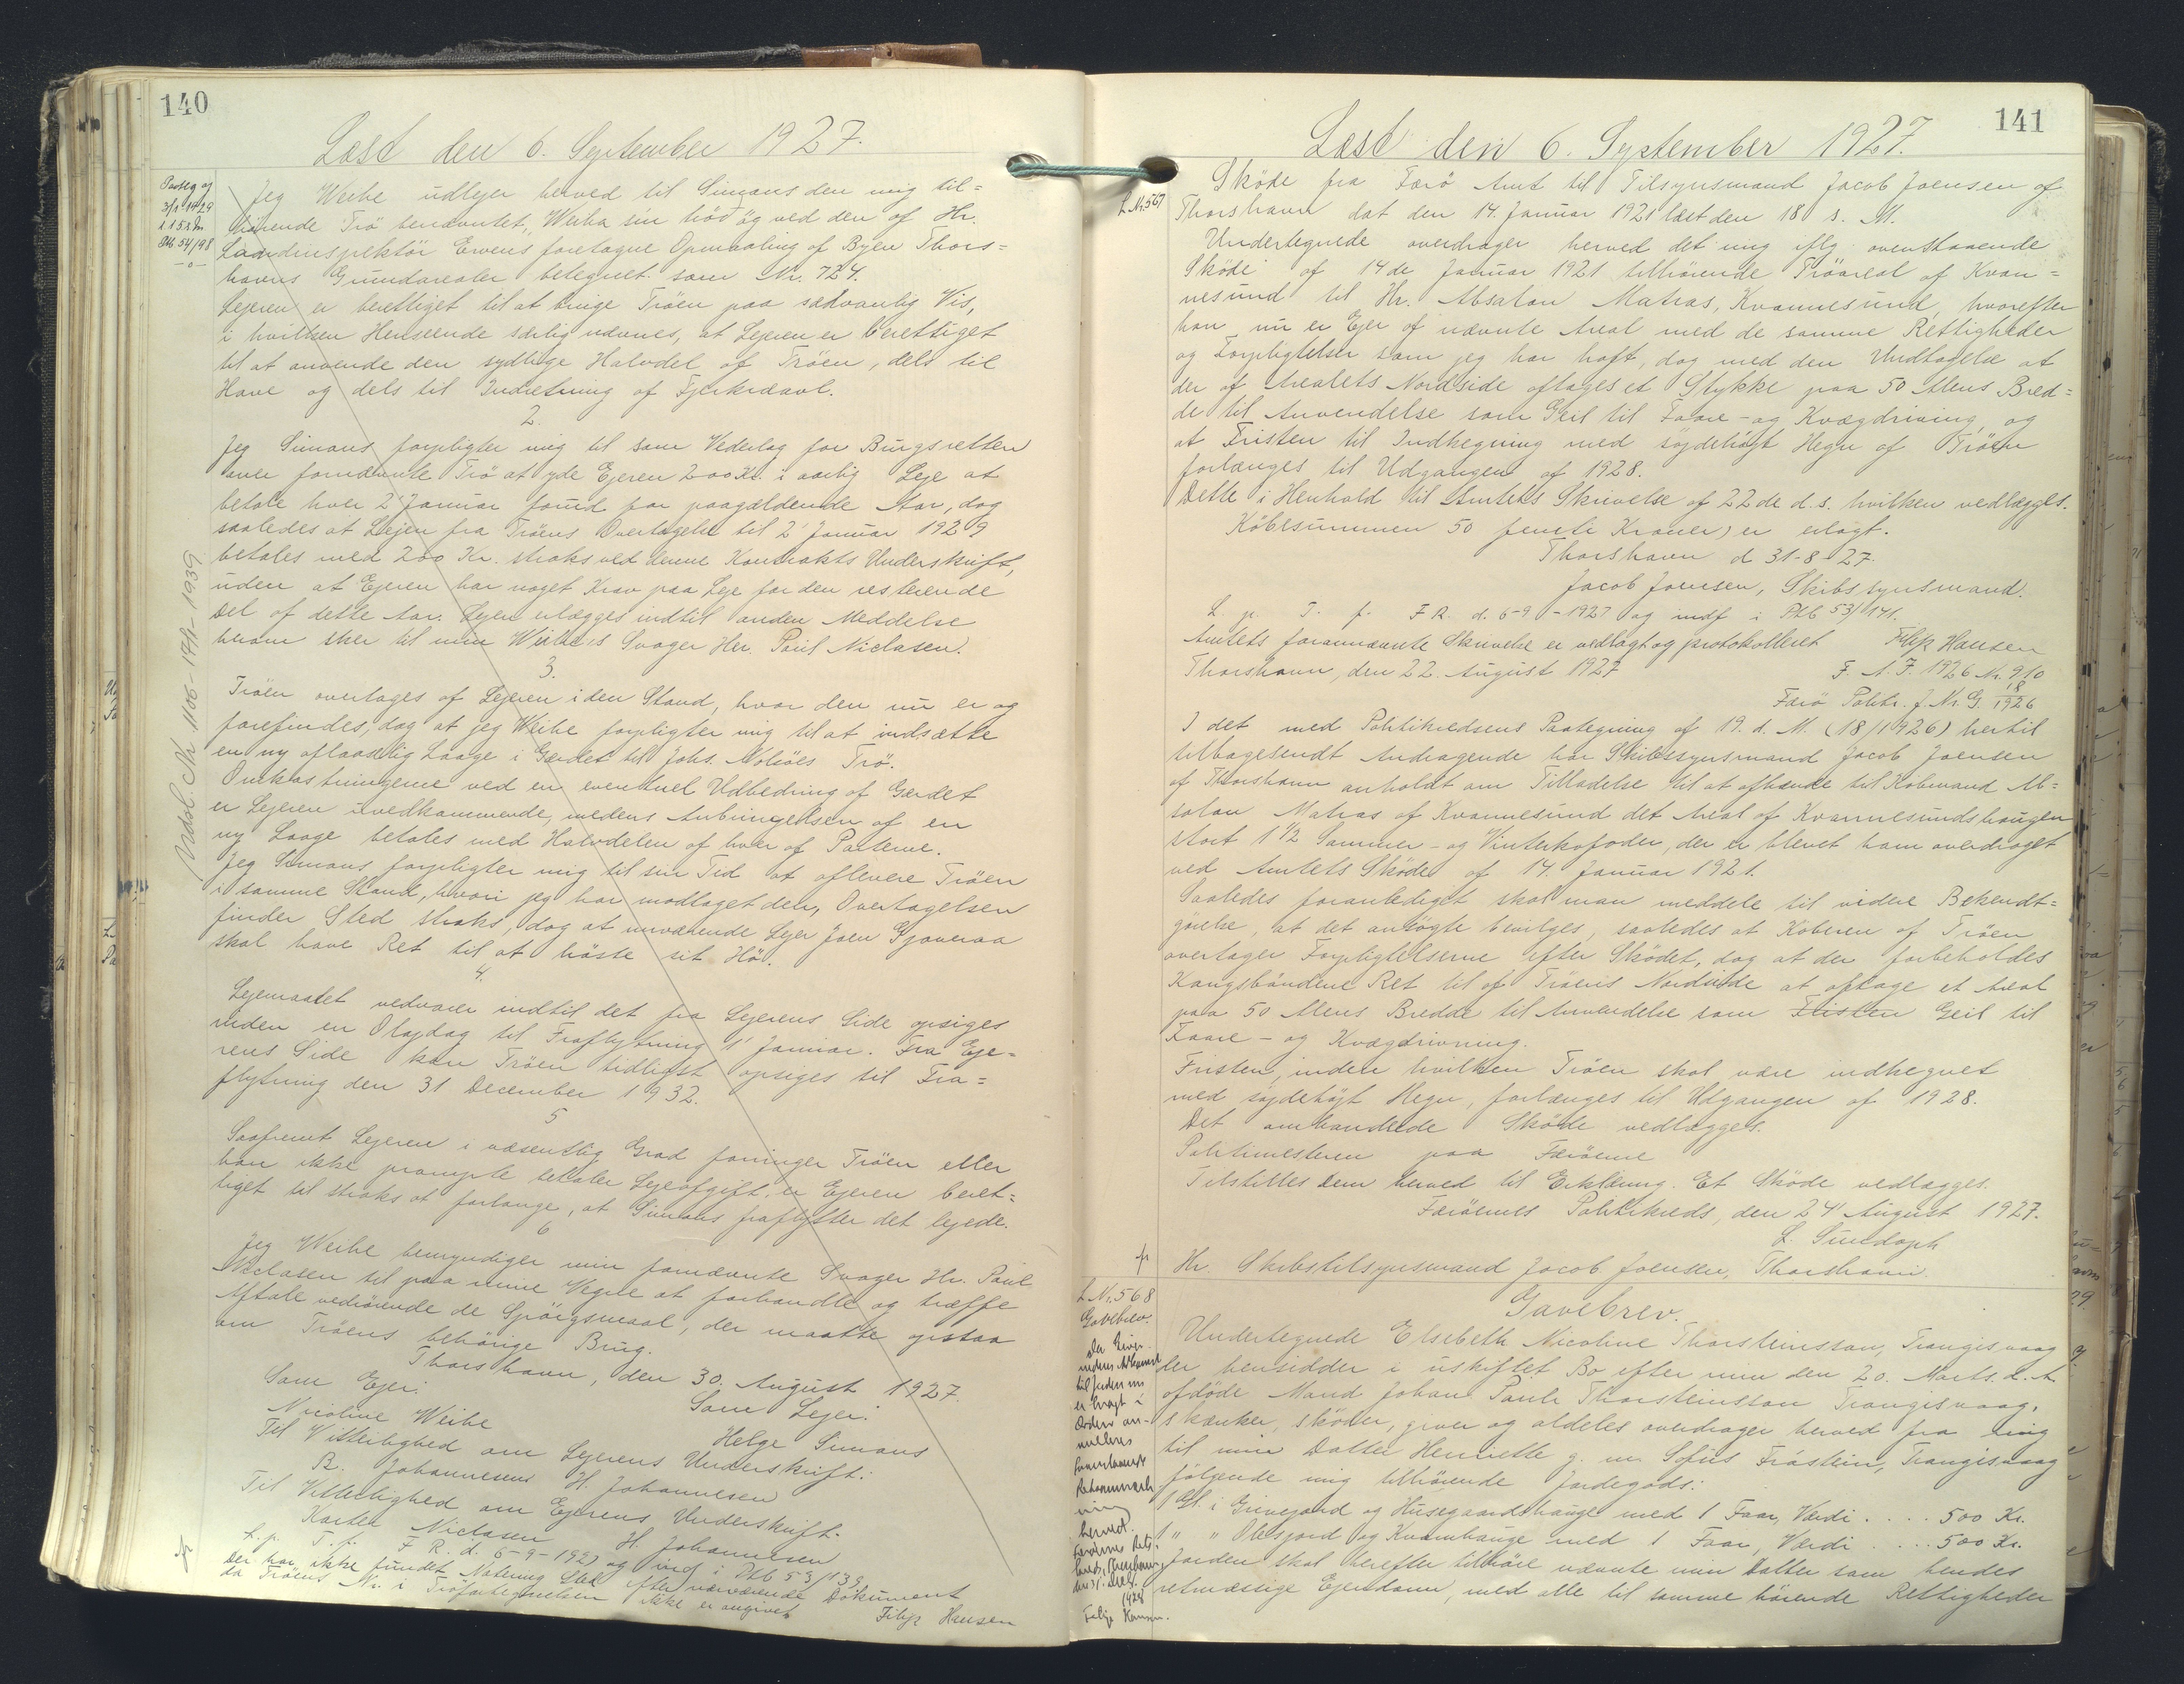 140
Læst den 6. September 1927.
Paateg og
3/1 1929
Pkb 54/98
Jeg Weihe udlejer herved til Simons den mig til=
hörende Trö benævntet, Weiha sin tröð og ved den af Hr.
Landinspektör Erwens foretagne Opmaaling af Byen Thors=
havns Grundarealer betegnet som Nr. 724.
Lejeren er berettiget til at bruge Tröen paa sædvanlig Vis,
i hvilken Henseende særlig nævnes, at Lejeren er berettiget
til at anvende den sydlige Halvdel af Tröen, dels til
Have og dels til Indretning af Fjerkræavl.
2.
Jeg Simons forpligter mig til som Vederlag for Brugsretten
over fornævnte Trö at yde Ejeren 200 Kr. i aarlig Leje at
betale hver 2' Januar forud for paagældende Aar, dog
saaledes at Lejen fra Tröens Overtagelse til 2' Januar 1929
betales med 200 Kr. straks ved denne Kontrakts Underskrift,
uden at Ejeren har noget Krav paa Leje for den resterende
Del af dette Aar. Lejen erlægges indtil anden Meddelse
herom sker til min Weihe's Svager Her. Poul Niclasen.
3.
Tröen overtages af Lejeren i den Stand, hvor den nu er og
forefindes, dog at jeg Weihe forpligter mig til at indsætte
en ny aflaaselig Laage i Gærdet til Johs. Kolsöes Trö.
Omkostningerne ved en eventuel Udbedring af Gærdet
er Lejeren uvedkommende, medens Anbringelsen af en
ny Laage betales med Halvdelen af hver af Parterne.
Jeg Simons forpligter mig til sin Tid at aflevere Tröen
i samme Stand, hvori jeg har modtaget den, Overtagelsen
finder Sted straks, dog at nuværende Lejer Joen Gjoveraa
skal have Ret til at höste sit Hö.
4.
Lejemaalet vedvarer indtil det fra Lejerens Side opsiges
inden en Olajdag til Fraflytning 1' Januar. Fra Eje=
rens Side kan Tröen tidligst opsiges til Fra=
flytning den 31 December 1932.
5
Saafremt Lejeren i væsentlig Grad forringer Tröen eller
han ikke prompte betaler Lejeafgift, er Ejeren beret=
tiget til straks at forlange, at Simons fraflytter det lejede.
6
Jeg Weihe bemyndiger min fornævnte Svager Hr. Poul
Niclasen til paa mine Vegne at forhandle og træffe
Aftale vedrörende de Spörgsmaal, der maatte opstaa
om Tröens behörige Brug.
Thorshavn, den 30. August 1927.
Som Ejer: Som Lejer:
Nicoline Weihe Helge Simons
Til Vitterlighed om Lejerens Underskrift:
R. Johannesens H. Johannesen
Til Vitterlighed om Ejerens Underskrift.
Karten Niclasen H. Johannesen
L. p. T. f. F R. d. 6-9-1927 og indf i Pkb 53/139
Der har ikke fundet Notering Sted efter nærværende Dokument
da Tröens Nr. i Tröfortegnelsen ikke er angivet
Filip Hansen
141
Læst den 6. September 1927.
L Nr. 567
Sköde fra Færö Amt til Tilsynsmand Jacob Joensen af
Thorshavn dat den 14. Januar 1921 læst den 18 s. M.
Undertegnede overdrager herved det mig iflg ovenstaaende
Sköde af 14de Januar 1921 tilhörende Tröareal af Kvan=
nesund til Hr. Absalon Matras, Kvannesund, hvorefter
han nu er Ejer af nævnte Areal med de samme Rettigheder
og Forpligtelser som jeg har haft, dog med den Undtagelse at
der af Arealets Nordside aftages et Stykke paa 50 Alens Bred=
de til Anvendelse som Geil til Faare- og Kvægdriving, og
at Fristen til Indhegning med söjdehöjt Hegn af Tröen
forlænges til Udgangen af 1928.
Dette i Henhold til Amtets Skrivelse af 22de d. s. hvilken vedlægges.
Köbesummen 50 femti Kroner) er erlagt.
Thorshavn d 31-8-27.
Jacob Joensen, Skibssynsmand.
L. p. T. f. F R. d. 6-9-1927 og indf i Pkb 53/141.
Amtets forannævnte Skrivelse er vedlagt og protokolleret Filip Hansen
Thorshavn, den 22. August 1927 F. A. J. 1926 Nr. 910
Færö Politi. J. Nr. G. 18/1926
I det med Politikredsens Paategning af 19. d. M. (18/1926) hertil
tilbagesendt Andragende har Skibssynsmand Jacob Joensen
af Thorshavn anholdt om Tilladelse til at afhænde til Köbmand Ab=
salon Matras af Kvannesund det Areal af Kvannesundshaugen
stort 1 1/2 Sommer- og Vinterkofoder, der er blevet ham overdraget
ved Amtets Sköde af 14. Januar 1921.
Saaledes foranlediget skal man meddele til videre Bekendt=
görelse, at det ansögte bevilges, saaledes at Köberen af Tröen
overtager Forpligtelserne efter Sködet, dog at der forbeholdes
Kongsbönderne Ret til af Tröens Nordside at aftage et Areal
paa 50 Alens Bredde til Anvendelse som Fristen Geil til
Faare- og Kvægdrivning.
Fristen, inden hvilken Tröen skal være indhegnet
med söjdehöjt Hegn, forlænges til Udgangen af 1928.
Det omhandlede Sköde vedlægges.
Politimesteren paa Færöerne
Tilstilles Dem herved til Erklæring. Et Sköde vedlægges.
Færöernes Politikreds, den 24' August 1927.
L. Sundoph
Hr. Skibstilsynsmand Jacob Joensen, Thorshavn.
L Nr. 568
Gavebrev.
Gavebrev.
Undertegnede Elsebeth Nicoline Thorsteinsson, Trangisvaag
der hensidder i uskiftet Bo efter min den 20. Marts d. A.
afdöde Mand Johan Pauli Thorsteinsson Trangisvaag,
skænker, sköder, giver og aldeles overdrager herved fra mig
til min Datter Henriette g. m. Sofus Fróstein, Trangisvaag
følgende mig tilhörende Jordegods:
1 Gl. i Grinejord og Husegaardshauge med 1 Faar, Værdi .... 500 Kr.
1 " " Olesjord og Kvambauge med 1 Faar, Værdi .... 500 Kr.
Jorden skal herefter tilhöre nævnte min Datter som hendes
retmæssige Ejendom, med alle til samme hörende Rettigheder
Filip Hansen.